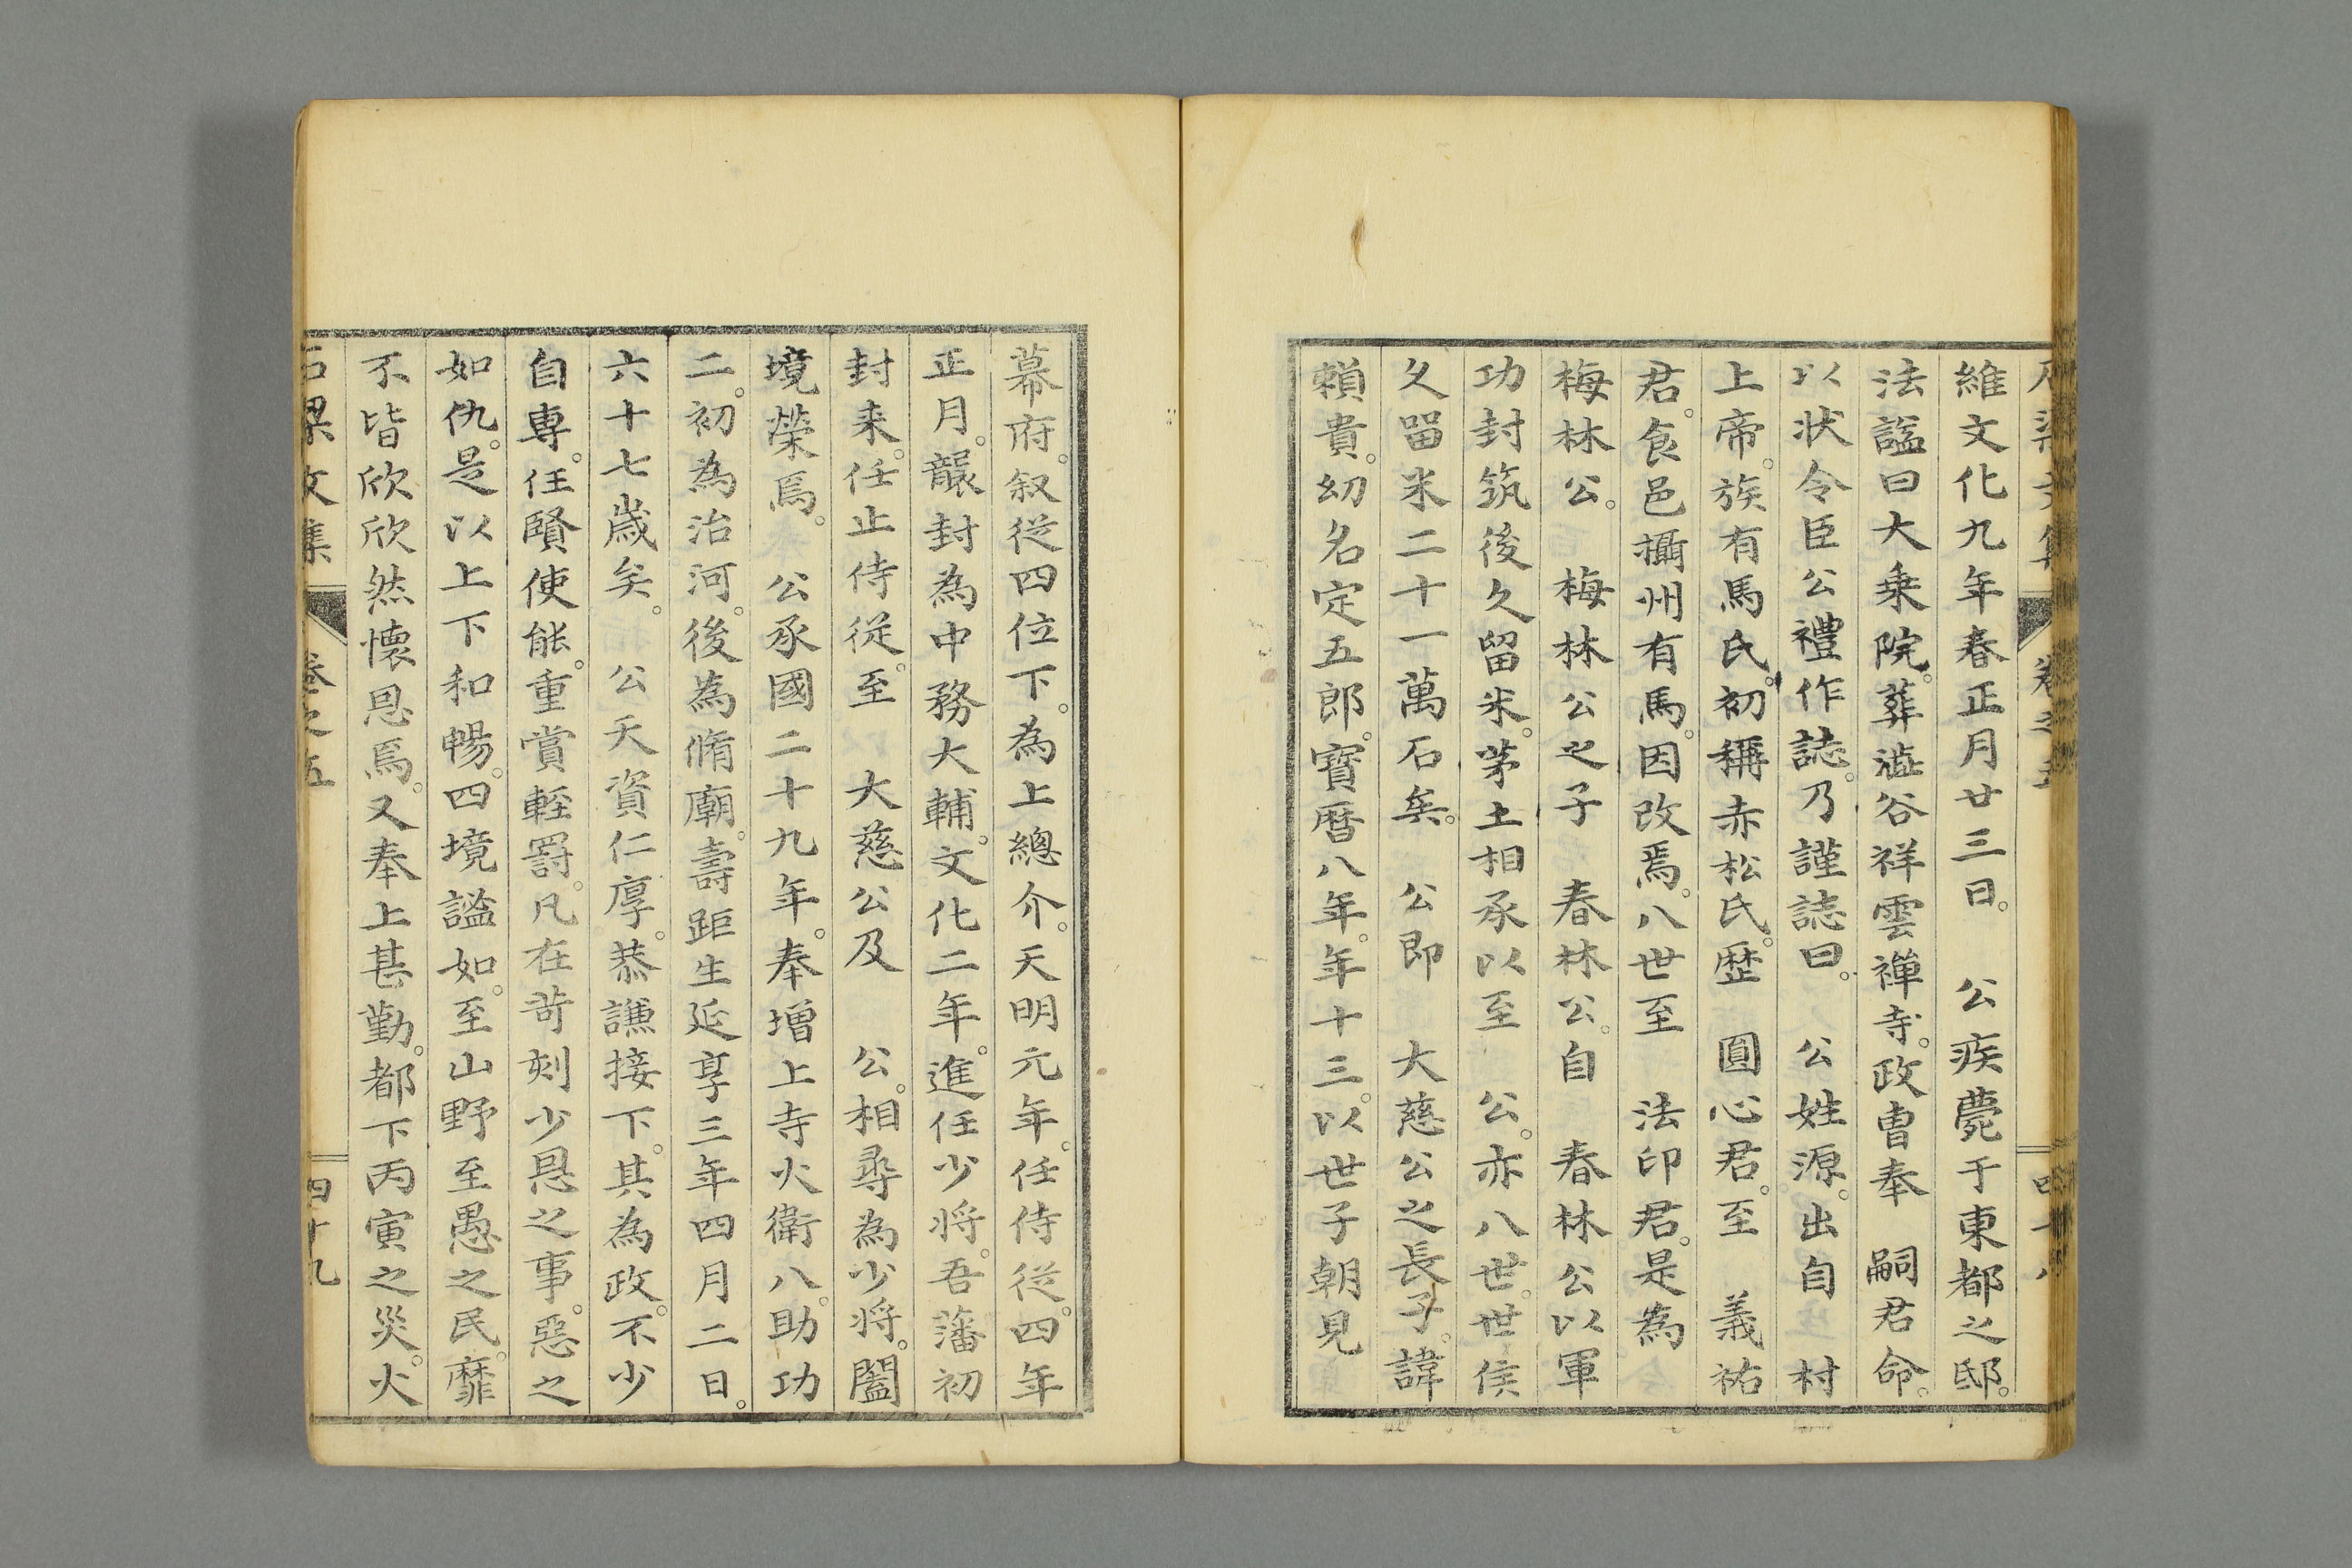 維文化九年春正月廿三日。　公疾薨于東都之邸。
法謚曰大乗院。葬澁谷祥雲禪寺。政曹奉　嗣君命。
以状令臣公禮作誌。乃謹誌曰。　公姓源。出自　村
上帝。族有馬氏。初稱赤松氏。歴　圓心君。至　義祐
君。食邑攝州有馬。因改焉。八世至　法印君。是為
梅林公。　梅林公之子　春林公。自　春林公以軍
功封筑後久留米。茅土相承以至　公。亦八世。世侯
久留米二十一萬石矣。　公即　大慈公之長子。諱
頼貴。幼名定五郎。寶暦八年。年十三。以世子朝見
幕府。叙従四位下。為上總介。天明元年。任侍從。四年
正月。襲封為中務大輔。文化二年。進任少将。吾藩初
封来。任止侍從。至　大慈公及　公。相尋為少将。闔
境榮焉。　公承國二十九年。奉增上寺火衛八。助功
二。初為治河。後為脩廟。壽距生延享三年四月二日。
六十七歳矣。　公天資仁厚。恭謙接下。其為政。不少
自専。任賢使能。重賞輕罸。凡在苛刻少恩之事。惡之
如仇。是以上下和暢。四境謐如。至山野至愚之民。靡
不皆欣欣然懷恩焉。又奉上甚勤。都下丙寅之災。火
石梁文集　卷之五　四十九